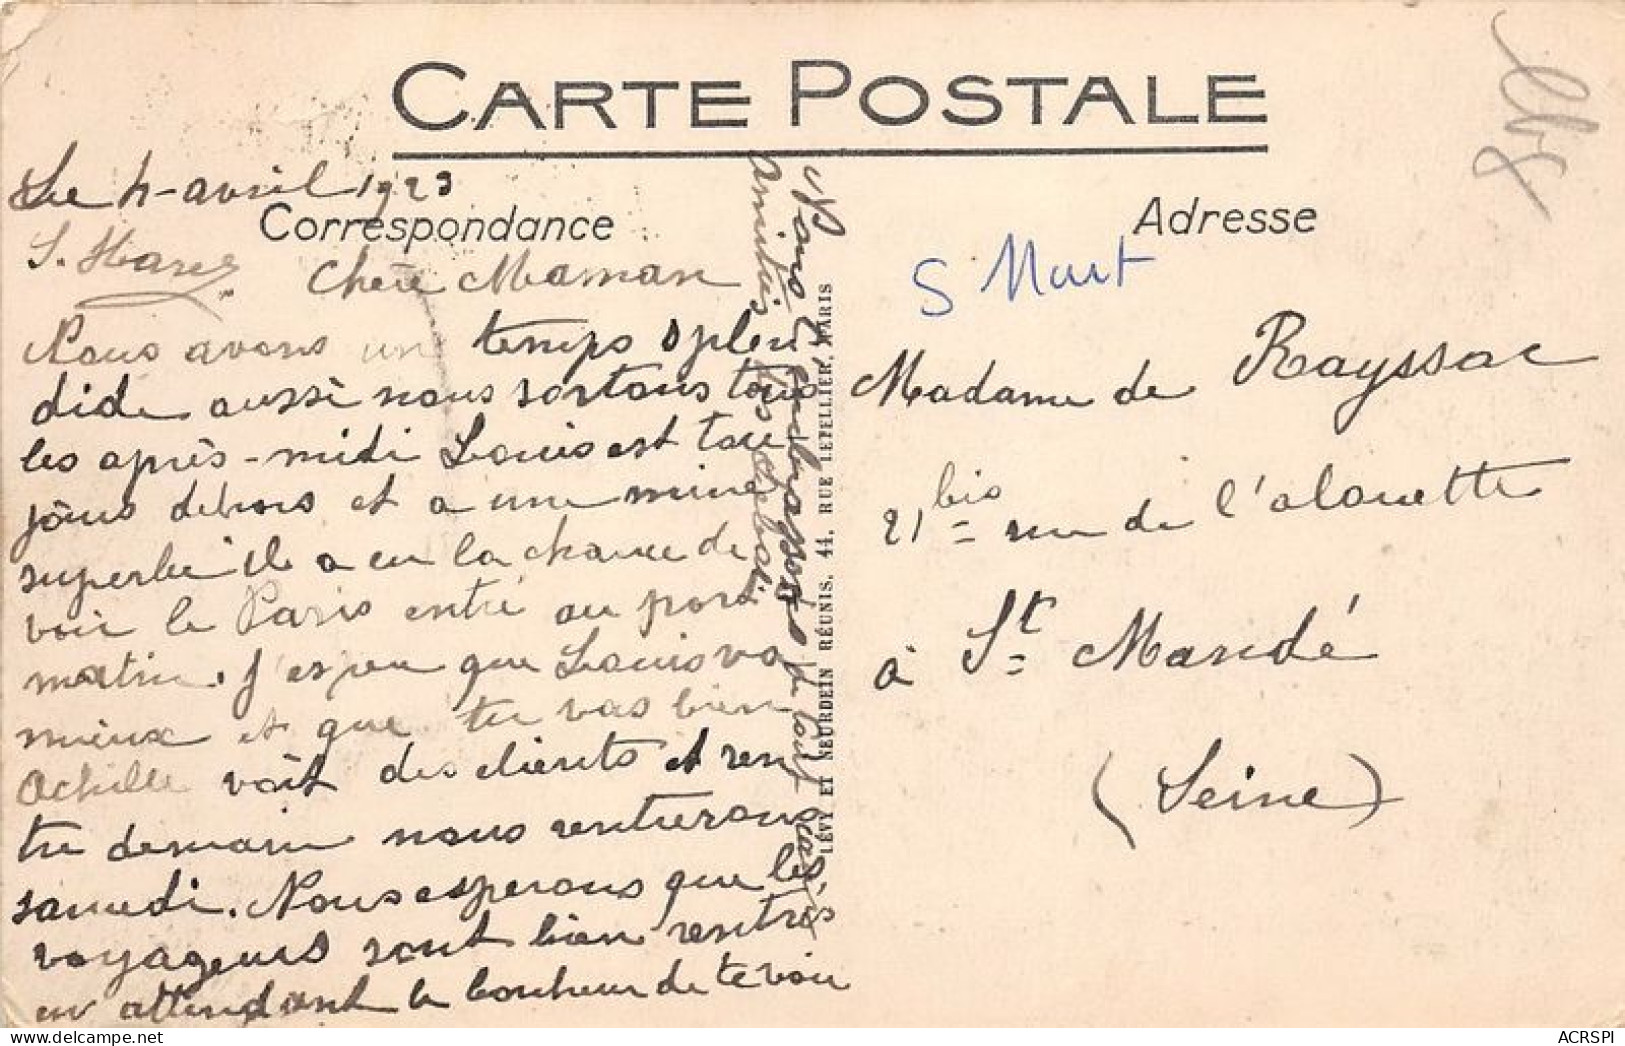 CARTE POSTALE
Le 4 avril 1923
Correspondance
Chère Maman
Nous avons un temps splen
dide aussi nous sortons tous
les après-midi Louis est tou
jours dehors et a une mine
superbe il a eu la chance de
voir le Paris entré au port
matin. J'espère que Louis va
mieux et que tu vas bien
Achille voit des clients et ren
tre demain nous rentrerons
samedi. Nous esperons que les
voyageurs sont bien rentrés
en attendant le bonheur de te voir
Nous t'embrassons de tout
amitiés
LÉVY ET NEURDEIN RÉUNIS, 44, RUE LETELLIER, PARIS
Adresse
Madame de Rayssac
21 bis rue de l'alouette
à St Mandé
(Seine)
ACRSPI